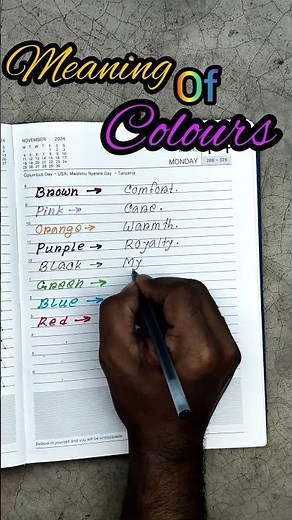 Meaning
Of
Colours
NOVEMBER 2024
MONDAY
Columbus Day - USA; Mwalimu Nyerere Day - Tanzania
Brown → Comfort.
Pink → Care.
Orange → Warmth.
Purple → Royalty.
Black → My
Green →
Blue →
Red →
Believe in yourself and you will be unstoppable.